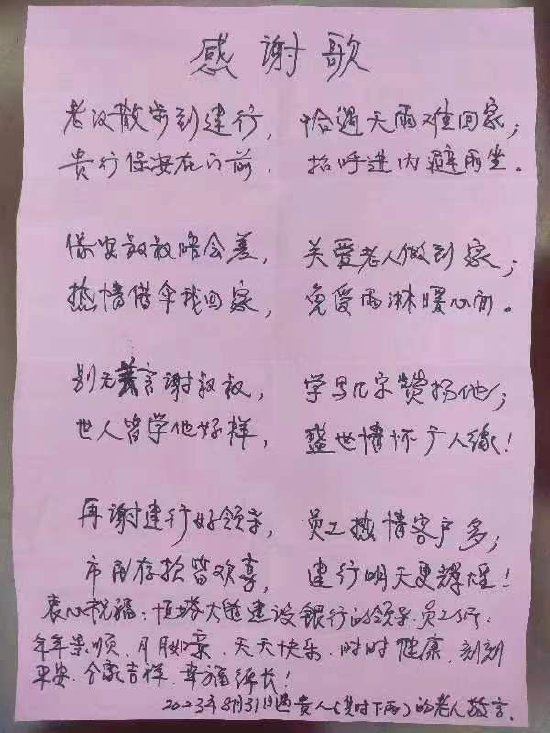 感谢歌
老汉散步到建行， 恰遇天雨难回家；
贵行保安在门前， 招呼进内避雨坐。
保安叔叔晗会善， 关爱老人做到家；
热情借伞我回家， 免受雨淋暖心间。
别无善言谢叔叔， 学写几字赞扬他；
世人皆学他好样， 盛世情怀广人缘！
再谢建行好领导， 员工热情客户多；
市民存款皆欢喜， 建行明天更辉煌！
衷心祝福：恒 大道建设银行的领导、员工们：
年年 顺、月月 、天天快乐、时时健康、刻刻
平安、合家吉祥、幸福绵长！
2023年8月31日遇贵人(其时下雨)的老人敬言。